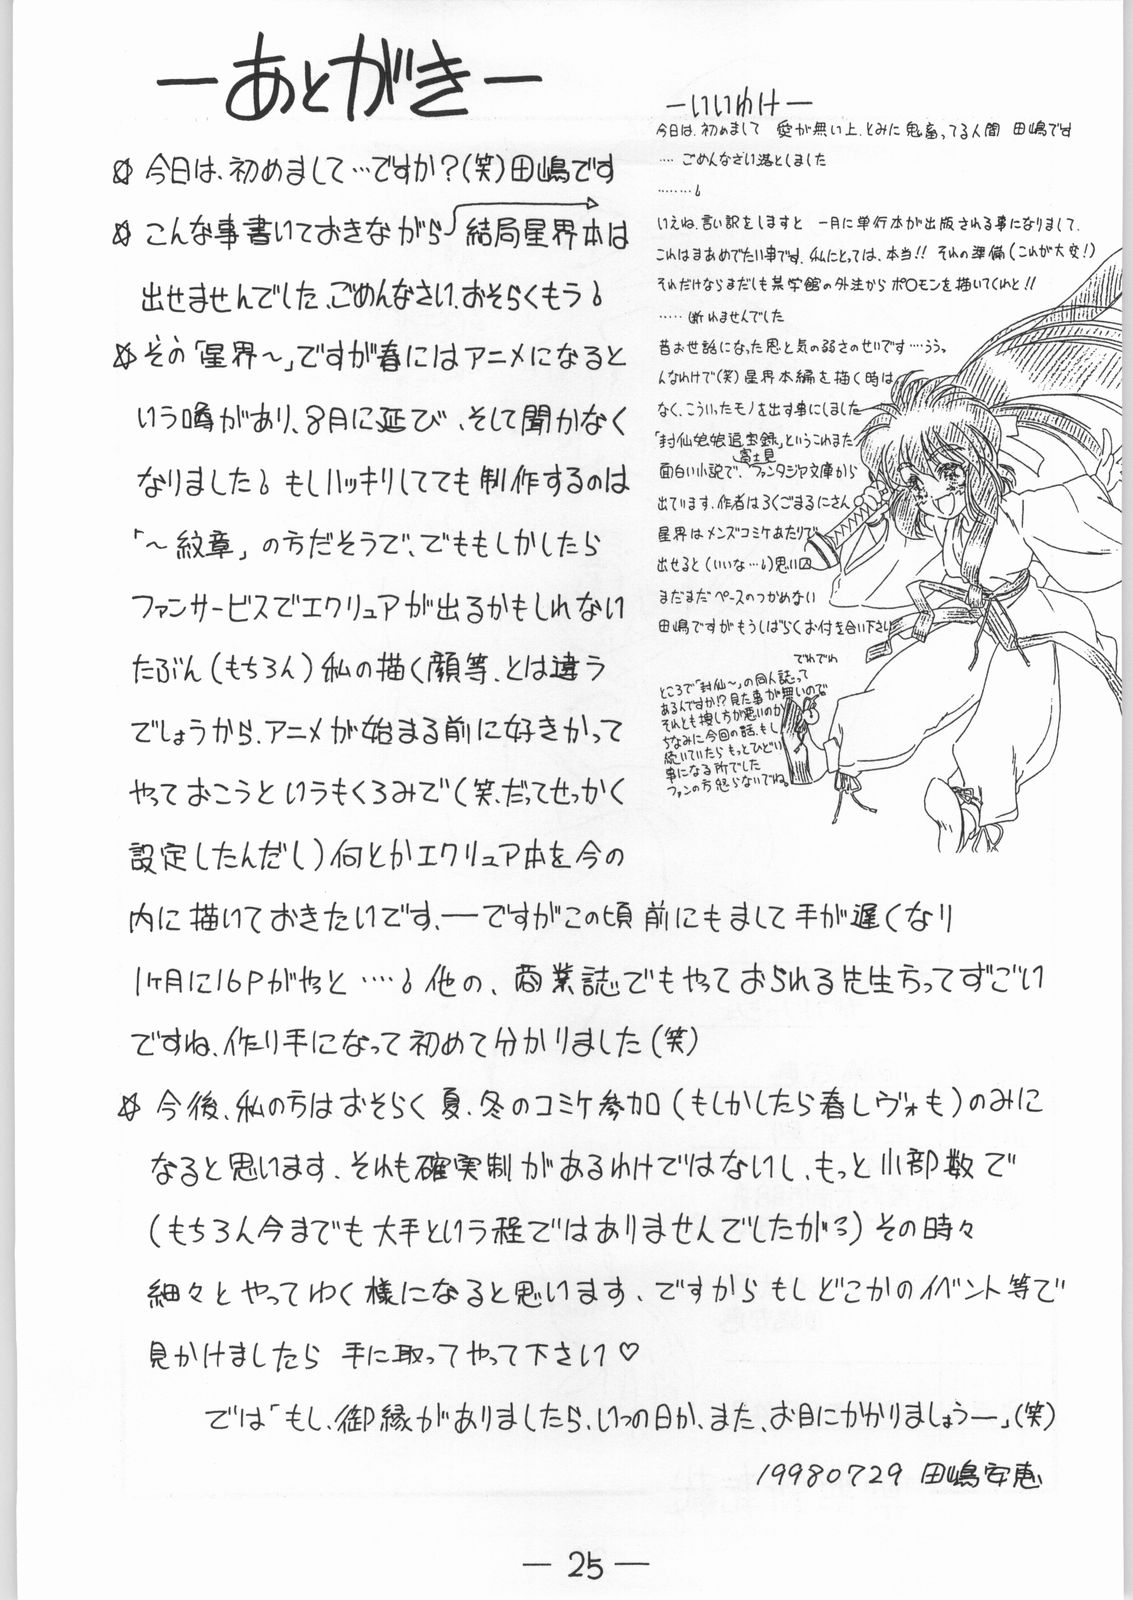 ―あとがき―
☆ 今日は、初めまして…ですか?(笑)田嶋です
☆ こんな事書いておきながら 結局星界本は
出せませんでした、ごめんなさい、おそらくもう
☆ その「星界~」ですが春にはアニメになると
いう噂があり、8月に延び、そして聞かなく
なりました もしハッキリしてても制作するのは
「~紋章」の方だそうで、でももしかしたら
ファンサービスでエクリュアが出るかもしれない
たぶん(もちろん)私の描く顔等、とは違う
でしょうから、アニメが始まる前に好きかって
やっておこうというもくろみで(笑、だってせっかく
設定したんだし)何とかエクリュア本を今の
内に描いておきたいです、―ですがこの頃前にもまして手が遅くなり
1ヶ月に16Pがやっと…. 他の、商業誌でもやっておられる先生方ってすごい
ですね、作り手になって初めて分かりました(笑)
☆ 今後、私の方はおそらく夏、冬のコミケ参加(もしかしたら春レヴォも)のみに
なると思います、それも確実制があるわけではないし、もっと小部数で
(もちろん今までも大手という程ではありませんでしたがろ)その時々
細々とやってゆく様になると思います、ですからもしどこかのイベント等で
見かけましたら 手に取ってやって下さい♡
では「もし、御縁がありましたら、いつの日か、また、お目にかかりましょうー」(笑)
19980729 田嶋安恵
―いいわけ―
今日は、初めまして 愛が無い上、とみに鬼畜ってる人間 田嶋です
…. ごめんなさい落としました
………
いえね、言い訳をしますと 一月に単行本が出版される事になりまして、
これはまあめでたい事です、私にとっては、本当!! それの準備(これが大変!)
それだけならまだしも某学館の外注からポ○モンを描いてくれと!!
…..断れませんでした
昔お世話になった恩と気の弱さのせいです….うぅ、
んなわけで(笑)星界本編を描く時は
なく、こういったモノを出す事にしました
「封仙娘娘追宝録」というこれまた
面白い小説で、富士見ファンタジア文庫から
出ています、作者はろくごまるにさん
星界はメンズコミケあたりで
出せると(いいな…)思い
まだまだペースのつかめない
田嶋ですがもうしばらくお付き合い下さい
でれでれ
ところで「封仙~」の同人誌って
あるんですか!?見た事が無いので
それとも捜し方が悪いのか
ちなみに今回の話、もし
続いていたらもっとひどい
事になる所でした
ファンの方怒らないでね。
―25―